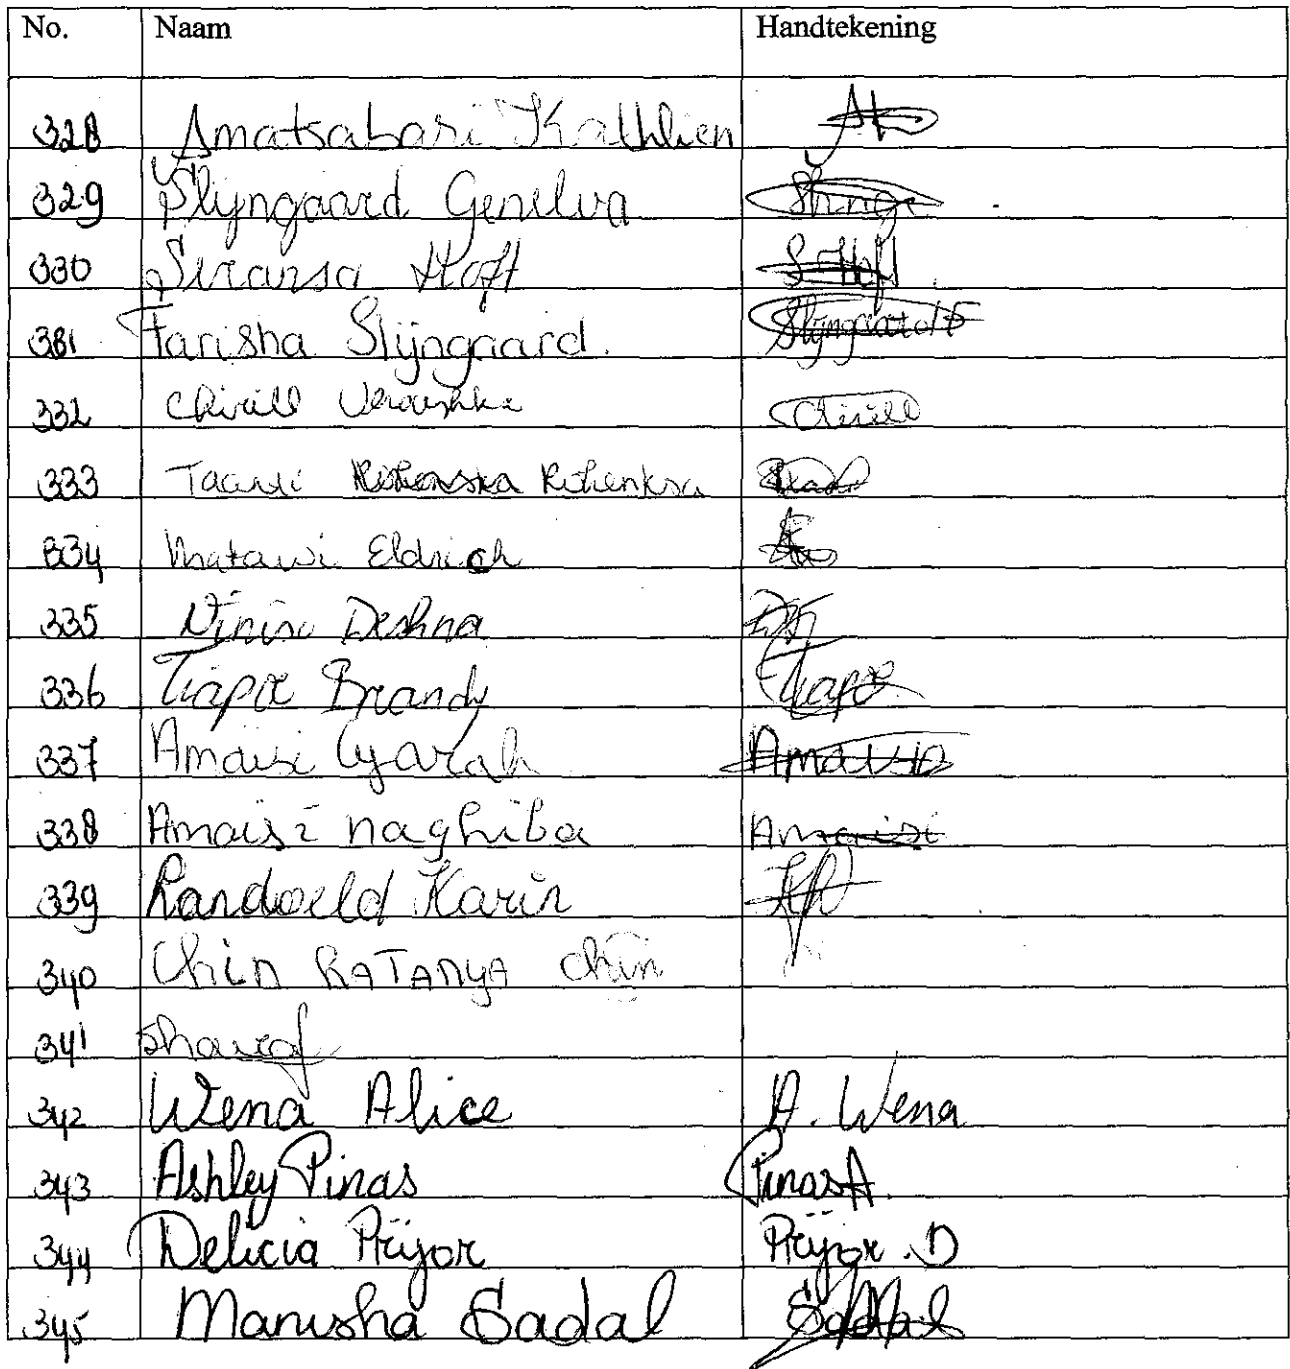 No. Naam Handtekening
328 Amatsabari Kathlien
329 Slijngaard Genelva
330 Sirarsa Hoft S Hoft
331 Tarisha Slijngaard. Slijngaard F
332 Chirill Veraushka Chirill
333 Taardi Rishenksa
334 Matawi Eldrich
335 Vinisi Deshna
336 Tiapoe Brandy Tiapoe
337 Amaisi Cyarah Amaisi
338 Amaisi naghiba Amaisi
339 Landveld Karin
340 Chin RATANYA Chin
341
342 Wena Alice A. Wena
343 Ashley Pinas Pinas A.
344 Delicia Prijor Prijor. D
345 Manusha Sadal Sadal